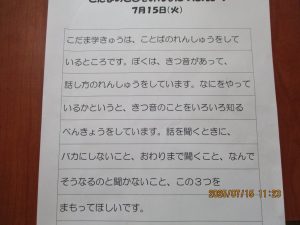 7月15日(火)
こだま学きゅうは、ことばのれんしゅうをして
いるところです。ぼくは、きつ音があって、
話し方のれんしゅうをしています。なにをやって
いるかというと、きつ音のことをいろいろ知る
べんきょうをしています。話を聞くときに、
バカにしないこと、おわりまで聞くこと、なんで
そうなるのと聞かないこと、この3つを
まもってほしいです。
2025/07/15 11:23